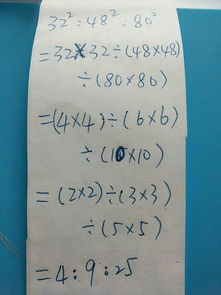 32² : 48² : 80²
=32×32÷(48×48)
÷(80×80)
=(4×4)÷(6×6)
÷(10×10)
=(2×2)÷(3×3)
÷(5×5)
=4:9:25